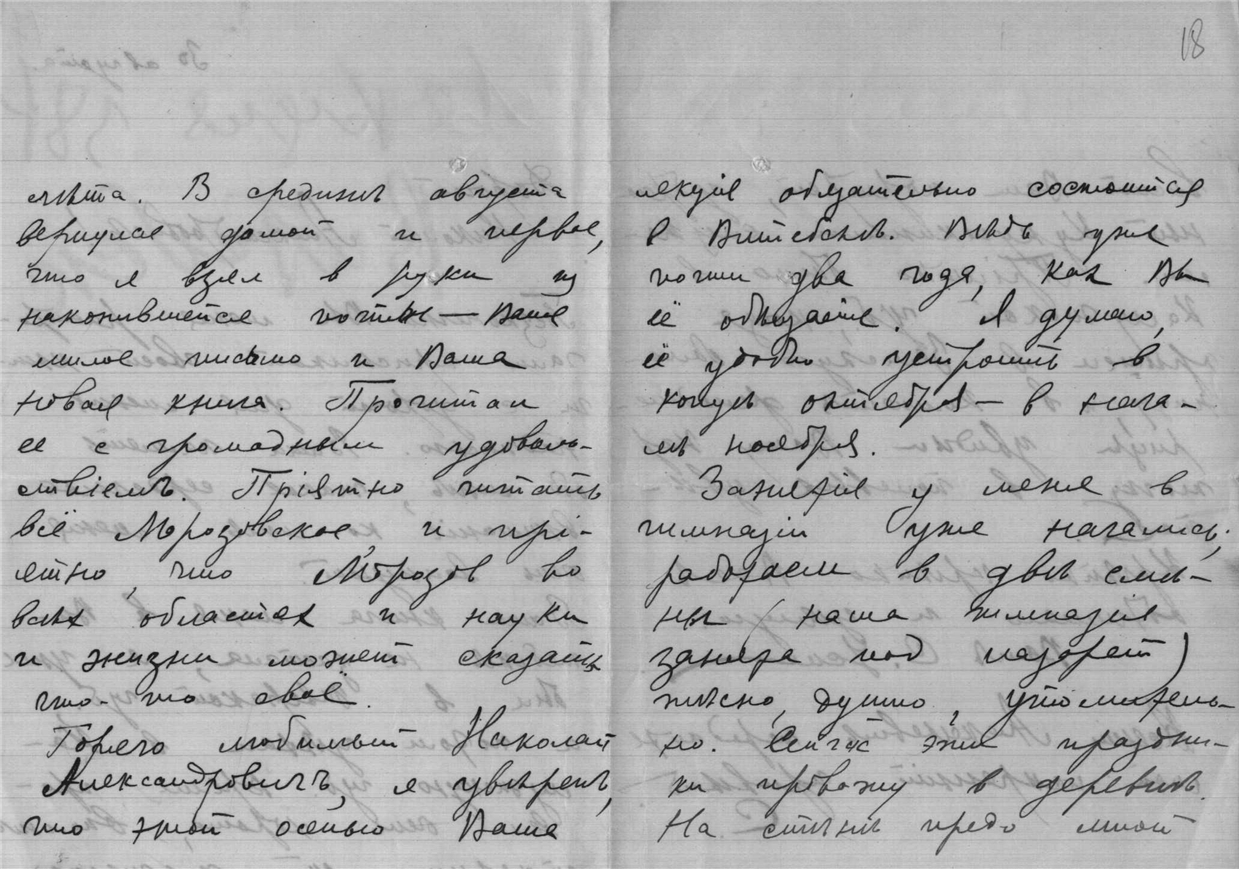 18
лѣта. В срединѣ августа
вернулся домой и первое,
что я взял в руки из
накопившейся почты — Ваше
милое письмо и Ваша
новая книга. Прочитал
ее с громадным удоволь-
ствіемъ. Пріятно читать
всё Морозовское, и прі-
ятно, что Морозов во
всѣх областях и науки
и жизни может сказать
что-то своё.
Горячо любимый Николай
Александровичъ, я увѣренъ,
что этой осенью Ваша
лекція обязательно состоится
в Витебскѣ. Вѣдь уже
почти два года, как Вы
её обѣщаете. Я думаю,
её удобно устроить в
концѣ октября — в нача-
лѣ ноября.
Занятія у меня в
гимназіи уже начались;
работаем в двѣ смѣ-
ны (наша гимназія
занята под лазарет)
тѣсно, душно, утомитель-
но. Сейчас эти праздни-
ки провожу в деревнѣ.
На стѣнѣ предо мной